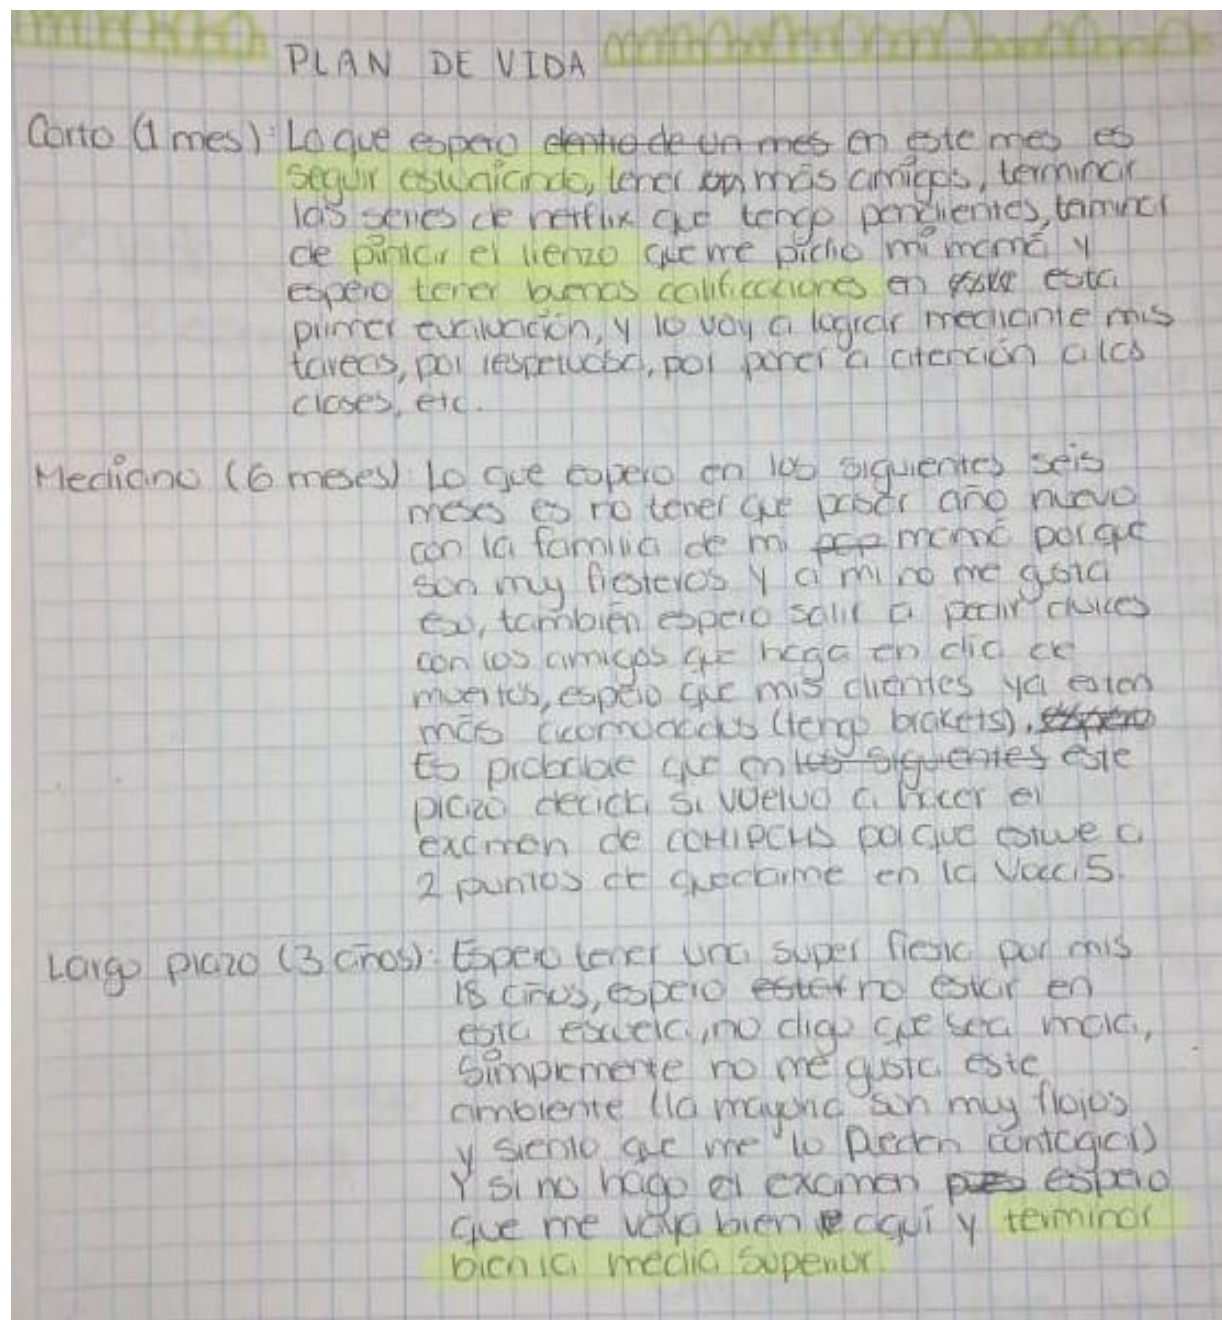 PLAN DE VIDA
Corto (1 mes): Lo que espero dentro de un mes en este mes es
seguir estudiando, tener más amigos, terminar
las series de netflix que tengo pendientes, terminar
de pintar el lienzo que me pidio mi mamá y
espero tener buenas calificaciones en esta
primer evaluación, y lo voy a lograr mediante mis
tareas, por poner a atención a las
clases, etc.
Mediano (6 meses) Lo que espero en los siguientes seis
meses es no tener que pasar año nuevo
con la familia de mi pap mamá porque
son muy fiesteros y a mi no me gusta
eso, también espero salir a pedir dulces
con los amigos que haga en dia de
muertos, espero que mis dientes ya esten
más acomodados (tengo brakets), espero
Es probable que en los siguientes este
plazo decida si vuelvo a hacer el
examen de porque estuve a
2 puntos de quedarme en la Voca 5.
Largo plazo (3 años): Espero tener una super fiesta por mis
18 años, espero estar no estar en
esta escuela, no digo que sea mala,
simplemente no me gusta este
ambiente (la mayoria son muy flojos
y siento que me lo pueden contagiar)
Y si no hago el examen pues espero
que me vaya bien aquí y terminar
bien la media superior.